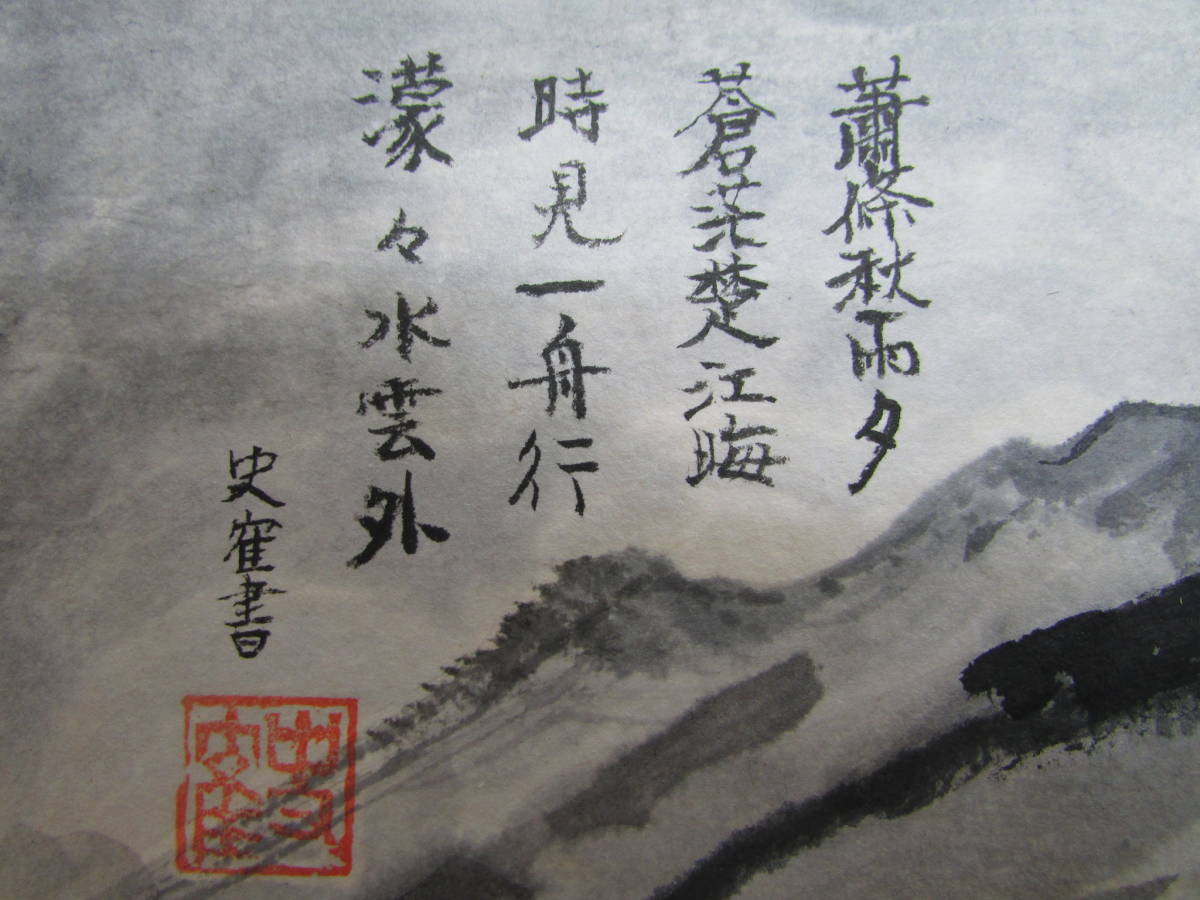 蕭條秋雨夕
蒼茫楚江晦
時見一舟行
濛々水雲外
史寉書
史寉